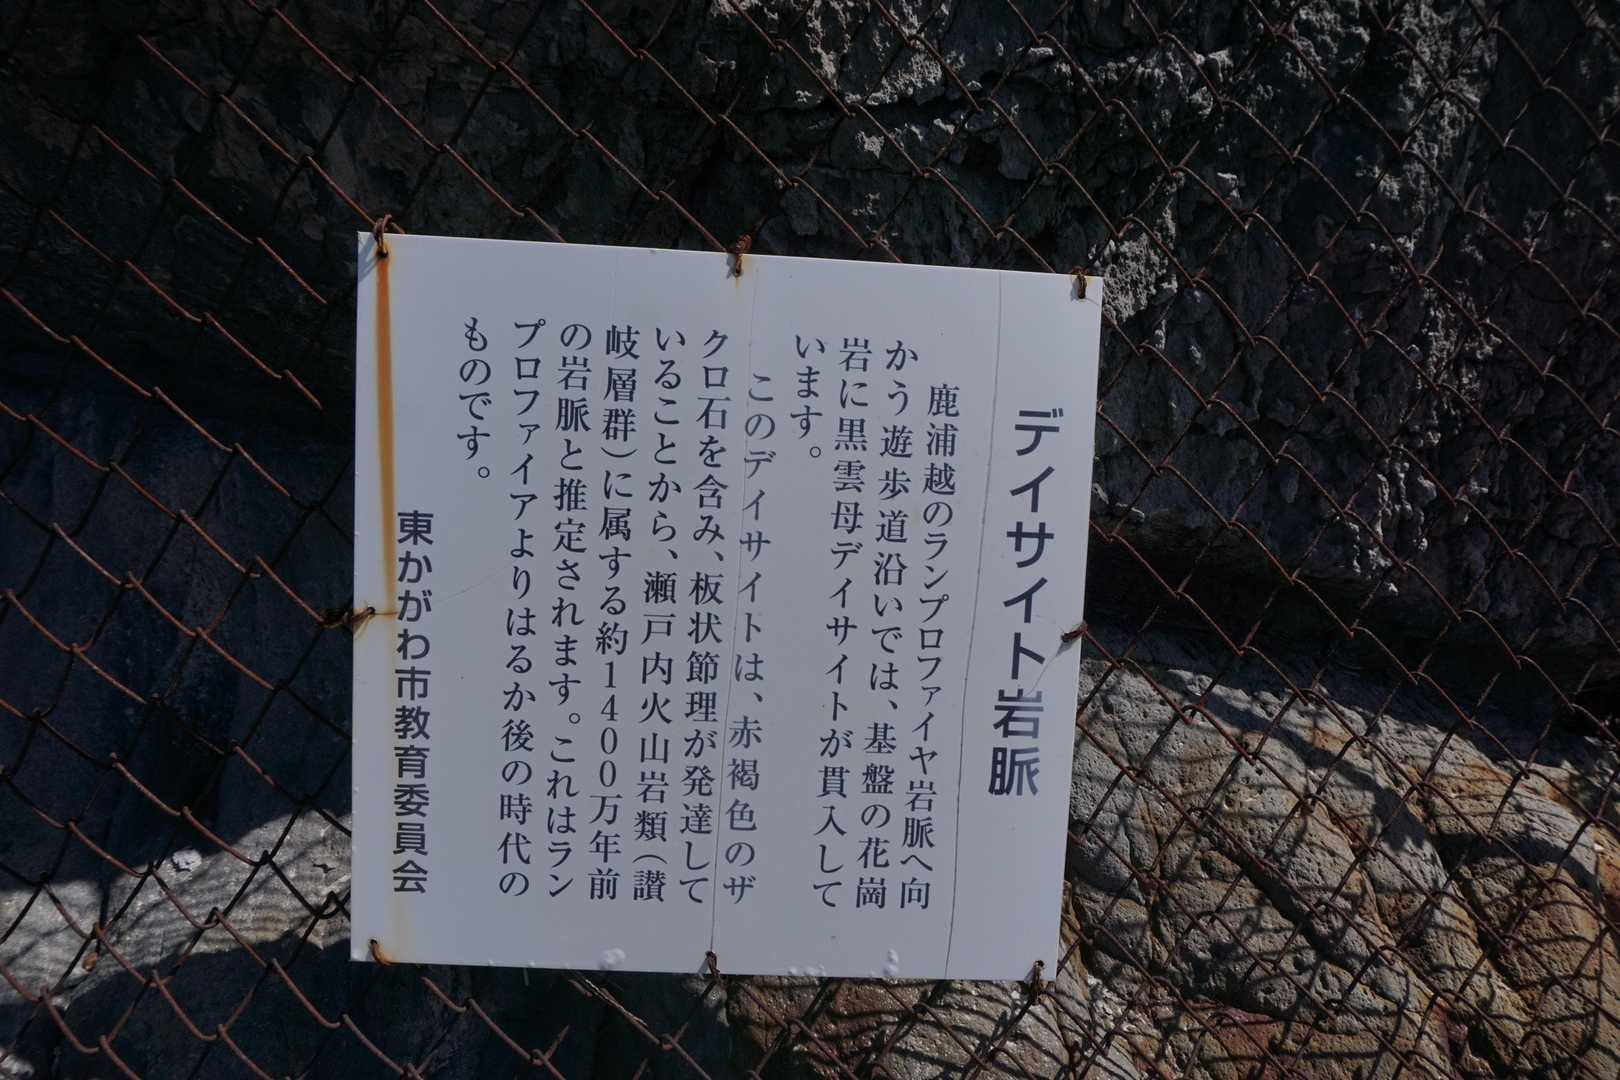 デイサイト岩脈
鹿浦越のランプロファイヤ岩脈へ向
かう遊歩道沿いでは、基盤の花崗
岩に黒雲母デイサイトが貫入して
います。
このデイサイトは、赤褐色のザ
クロ石を含み、板状節理が発達して
いることから、瀬戸内火山岩類（讃
岐層群）に属する約1400万年前
の岩脈と推定されます。これはラン
プロファイアよりはるか後の時代の
ものです。
東かがわ市教育委員会